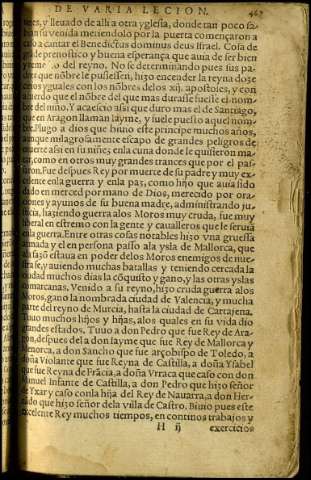 DE VARIA LECION.
y lleuado de alli a otra yglesia, donde tan poco sa-
bian su venida metiendolo por la puerta començaron a
caso a cantar el Benedictus dominus deus Israel. Cosa de
pronostico y buena esperança que auia de ser bien
del reyno. No se determinando pues sus pa-
dres que nõbre le pusiessen, hizo encender la reyna doze
yguales con los nõbres delos xij. apostoles, y con
acuerdo que el nõbre del que mas durasse fuesse el nom-
bre del niño. Y acaescio assi que duro mas el de Santiago,
que en Aragon llaman Iayme, y fuele puesto aquel nom-
bre. Plugo a dios que biuio este principe muchos años,
aunque milagrosamente escapo de grandes peligros de
muerte assi en su niñez, en la cuna donde le quisieron ma-
tar, como en otros muy grandes trances que por el pas-
saron. Fue despues Rey por muerte de su padre y muy ex-
celente en la guerra y en la paz, como hijo que auia sido
dado en merced por mano de Dios, merecido por ora-
ciones y ayunos de su buena madre, administrando ju-
sticia, haziendo guerra alos Moros muy cruda, fue muy
liberal en estremo con la gente y caualleros que le seruiã
en la guerra. Entre otras cosas notables hizo vna gruessa
armada y el en persona passo ala ysla de Mallorca, que
ala sazõ estaua en poder delos Moros enemigos de nue-
stra fe, y auiendo muchas batallas y teniendo cercada la
ciudad muchos dias la cõquisto y gano, y las otras yslas
comarcanas. Venido a su reyno, hizo cruda guerra alos
Moros, gano la nombrada ciudad de Valencia, y mucha
parte del reyno de Murcia, hasta la ciudad de Cartajena.
Tuuo muchos hijos y hijas, alos quales en su vida dio
grandes estados. Tuuo a don Pedro que fue Rey de Ara-
gon, despues del a don Iayme que fue Rey de Mallorca y
Menorca, a don Sancho que fue arçobispo de Toledo, a
doña Violante que fue Reyna de Castilla, a doña Ysabel
que fue Reyna de Frãcia, a doña Vrraca que caso con don
Manuel Infante de Castilla, a don Pedro que hizo señor
de Yxar y caso conla hija del Rey de Nauarra, a don Her-
nando que hizo señor dela villa de Castro. Biuio pues este
excelente Rey muchos tiempos, en continos trabajos y
H ij exercicios